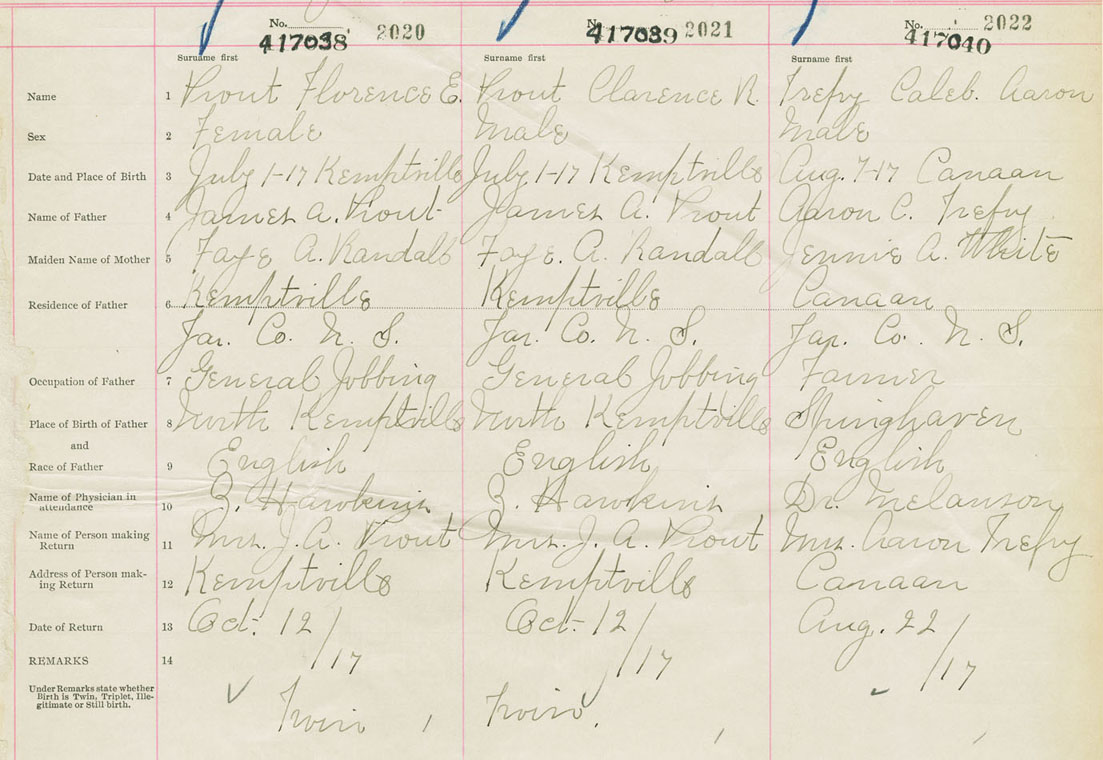 No. 417038 2020 No. 417039 2021 No. 417040 2022
Surname first Surname first Surname first
Name 1 Prout Florence E. Prout Clarence R. Trefry Caleb. Aaron
Sex 2 Female Male Male
Date and Place of Birth 3 July 1-17 Kemptville July 1-17 Kemptville Aug. 7-17 Canaan
Name of Father 4 James A. Prout James A. Prout Aaron C. Trefry
Maiden Name of Mother 5 Faye A. Randall Faye. A. Randall Jennie A. White
Residence of Father 6 Kemptville Kemptville Canaan
Yar. Co. N. S. Yar. Co. N. S. Yar. Co. N. S.
Occupation of Father 7 General Jobbing General Jobbing Farmer
Place of Birth of Father 8 North Kemptville North Kemptville Springhaven
and
Race of Father 9 English English English
Name of Physician in
attendance 10 Z. Hawkins Z. Hawkins Dr. Melanson
Name of Person making
Return 11 Mrs. J. A. Prout Mrs. J. A. Prout Mrs. Aaron Trefry
Address of Person mak-
ing Return 12 Kemptville Kemptville Canaan
Date of Return 13 Oct. 12/ Oct-12/ Aug. 22/
REMARKS 14 /17 /17 /17
Under Remarks state whether
Birth is Twin, Triplet, Ille-
gitimate or Still birth.
Twin Twin.